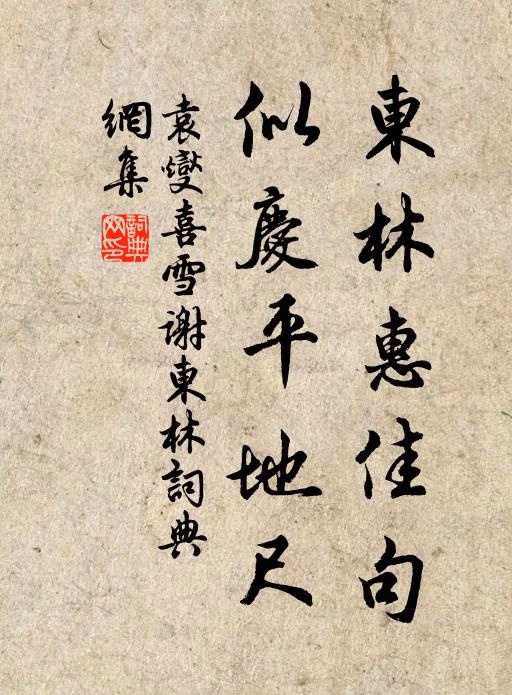 東林惠佳句
似慶平地尺
袁燮喜雪謝東林詞典
網集
詞典
网印